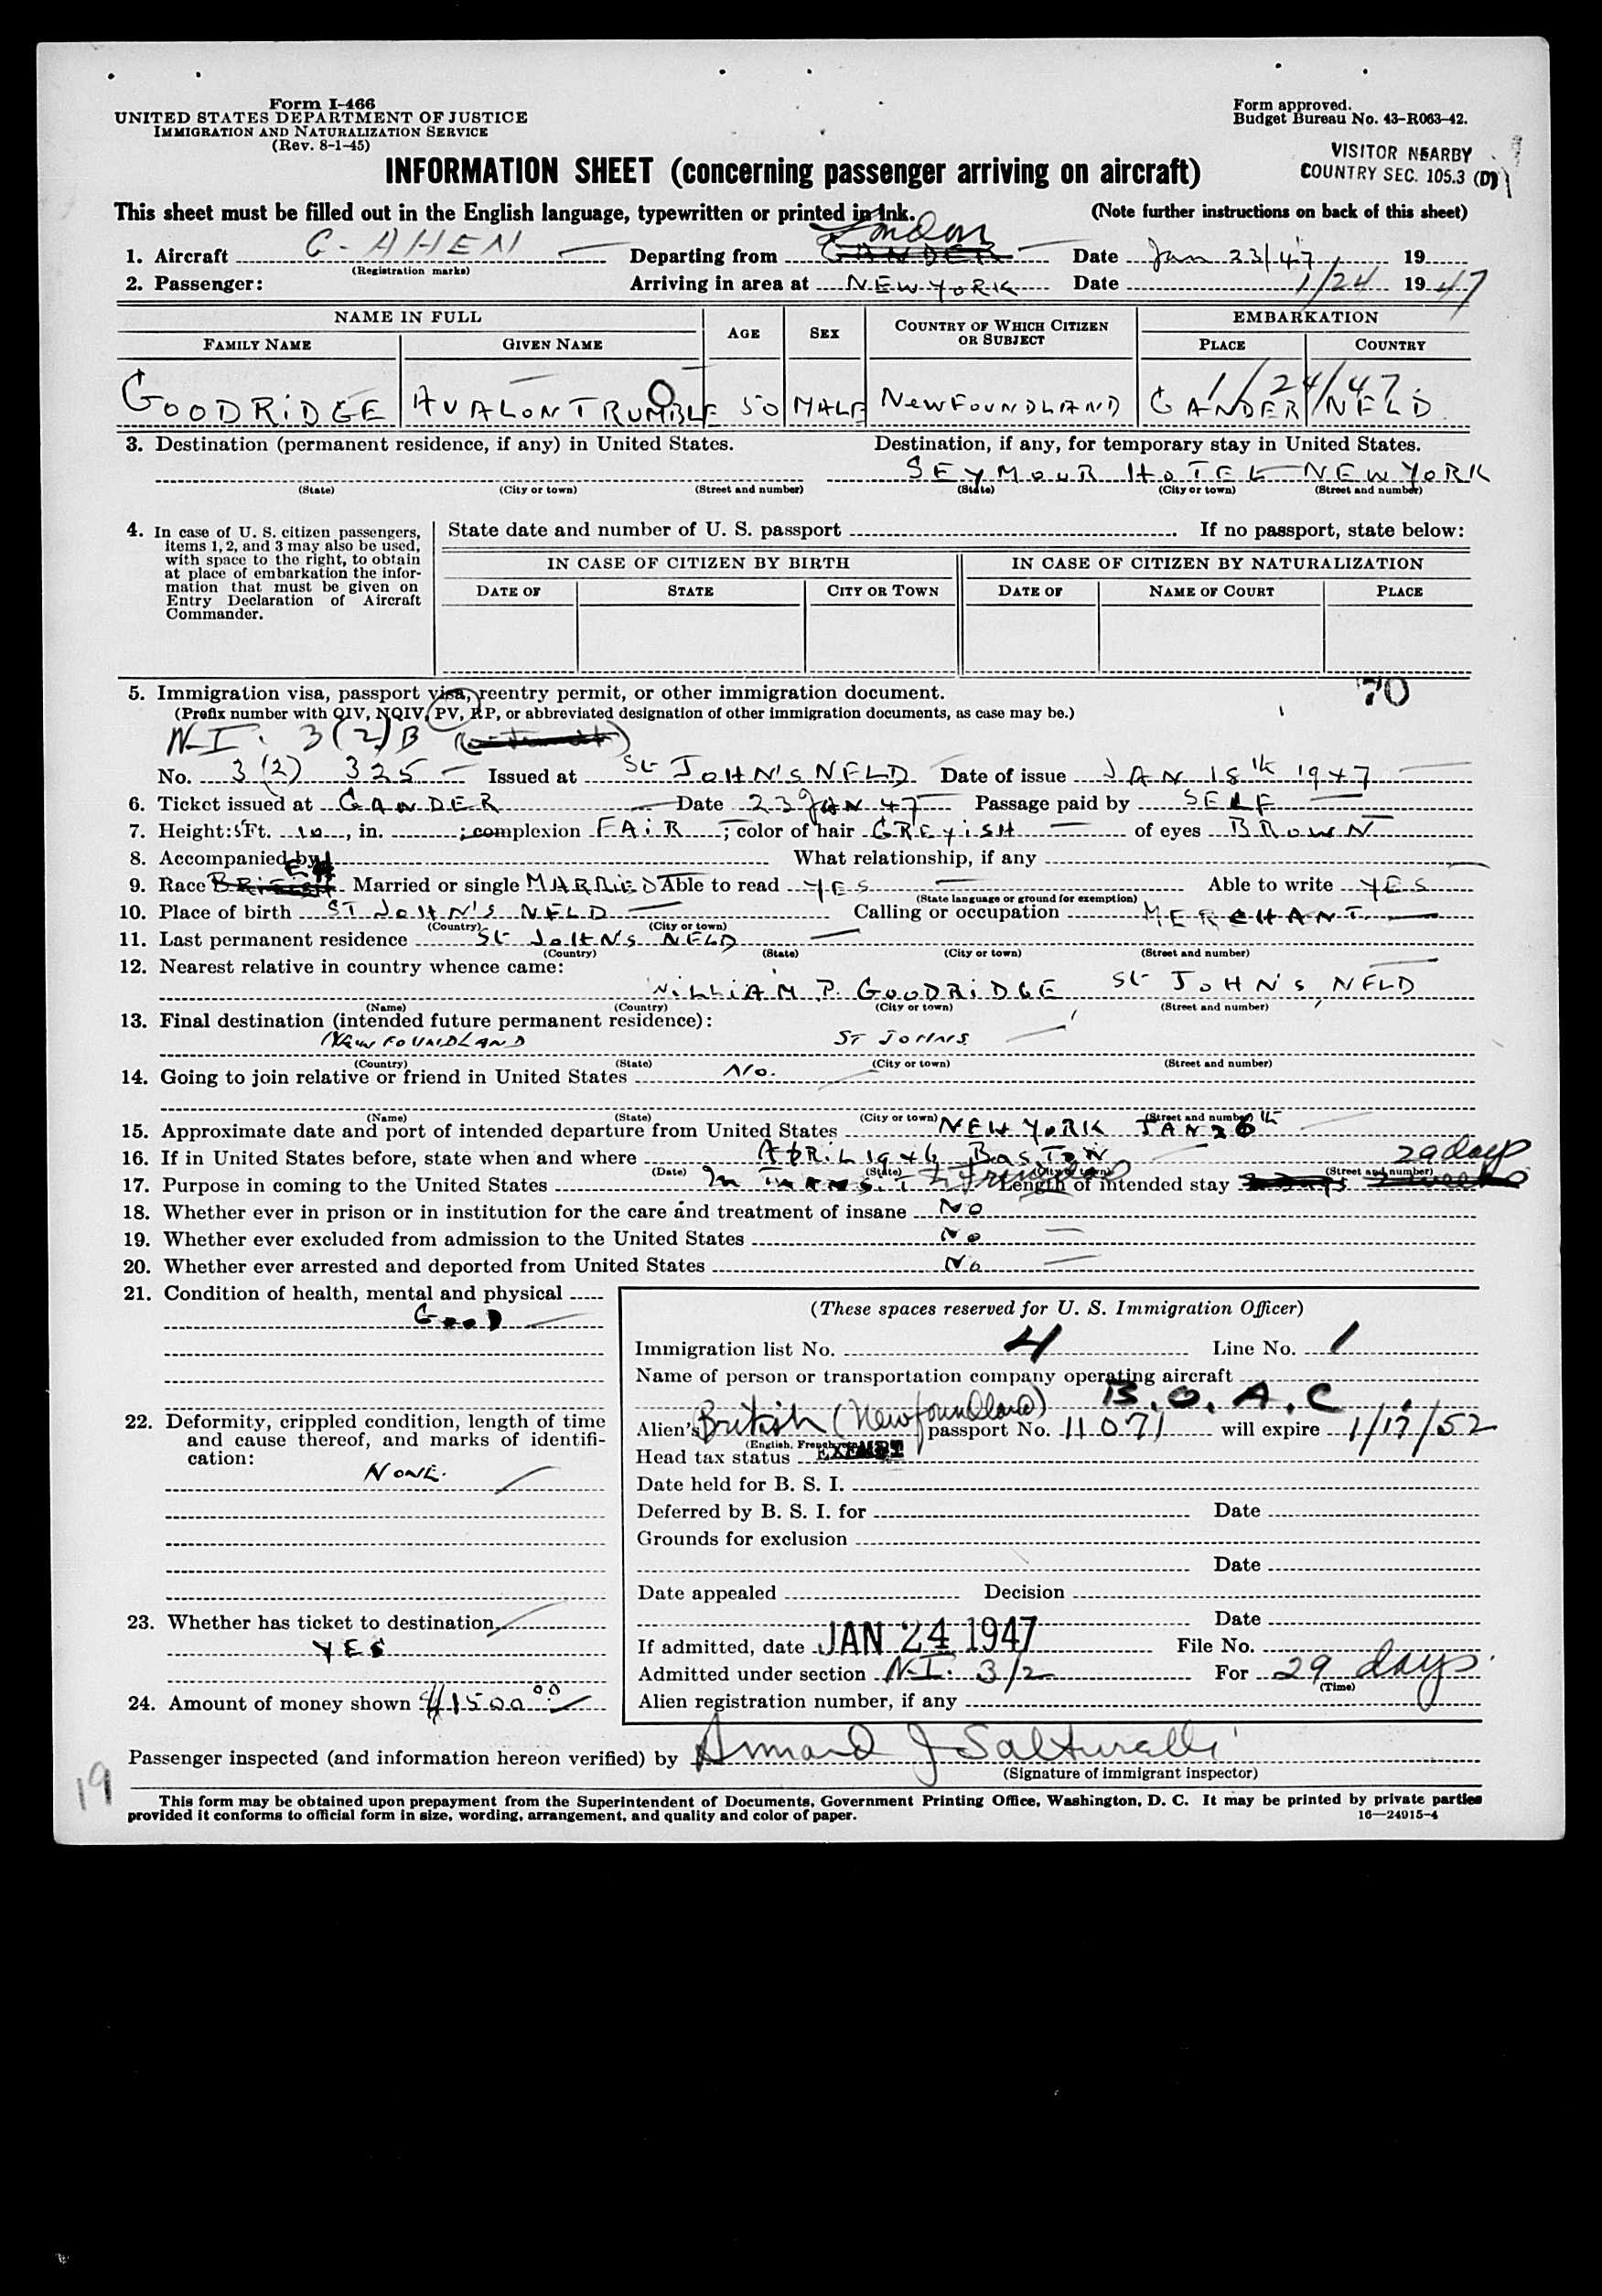 Form I-466
UNITED STATES DEPARTMENT OF JUSTICE
IMMIGRATION AND NATURALIZATION SERVICE
(Rev. 8-1-45)
Form approved.
Budget Bureau No. 43-R063-42.
VISITOR NEARBY
COUNTRY SEC. 105.3 (D)
INFORMATION SHEET (concerning passenger arriving on aircraft)
This sheet must be filled out in the English language, typewritten or printed in ink. (Note further instructions on back of this sheet)
1. Aircraft G-AHEN Departing from London GANDER Date Jan 23/47 19
(Registration marks)
2. Passenger: Arriving in area at NEW YORK Date 1/24 1947
NAME IN FULL AGE SEX COUNTRY OF WHICH CITIZEN OR SUBJECT EMBARKATION
FAMILY NAME GIVEN NAME PLACE COUNTRY
1/24/47
GOODRIDGE AVALON TRUMBLE 50 MALE NEWFOUNDLAND GANDER NFLD
3. Destination (permanent residence, if any) in United States. Destination, if any, for temporary stay in United States.
SEYMOUR HOTEL NEW YORK
(State) (City or town) (Street and number) (State) (City or town) (Street and number)
4. In case of U. S. citizen passengers, items 1, 2, and 3 may also be used, with space to the right, to obtain at place of embarkation the information that must be given on Entry Declaration of Aircraft Commander.
State date and number of U. S. passport If no passport, state below:
IN CASE OF CITIZEN BY BIRTH IN CASE OF CITIZEN BY NATURALIZATION
DATE OF STATE CITY OR TOWN DATE OF NAME OF COURT PLACE
5. Immigration visa, passport visa, reentry permit, or other immigration document. 70
(Prefix number with QIV, NQIV, PV, RP, or abbreviated designation of other immigration documents, as case may be.)
N-I: 3(2)B
No. 3(2) 325 Issued at St JOHN'S NFLD Date of issue JAN 18th 1947
6. Ticket issued at GANDER Date 23 JAN 47 Passage paid by SELF
7. Height: 5 Ft. 10, in. ; complexion FAIR ; color of hair GREYISH of eyes BROWN
8. Accompanied by What relationship, if any
9. Race BRITISH Married or single MARRIED Able to read YES Able to write YES
(State language or ground for exemption)
10. Place of birth ST JOHN'S NFLD Calling or occupation MERCHANT
(Country) (City or town)
11. Last permanent residence St JOHNS NFLD
(Country) (State) (City or town) (Street and number)
12. Nearest relative in country whence came:
WILLIAM P. GOODRIDGE St JOHN'S, NFLD
(Name) (Country) (City or town) (Street and number)
13. Final destination (intended future permanent residence):
NEWFOUNDLAND ST JOHNS
(Country) (State) (City or town) (Street and number)
14. Going to join relative or friend in United States NO.
(Name) (State) (City or town) (Street and number)
15. Approximate date and port of intended departure from United States NEW YORK JAN 26th
16. If in United States before, state when and where APRIL 1946 BOSTON 29 days
(Date) (State) (City or town) (Street and number)
17. Purpose in coming to the United States In TRANSIT Length of intended stay
18. Whether ever in prison or in institution for the care and treatment of insane NO
19. Whether ever excluded from admission to the United States No
20. Whether ever arrested and deported from United States No
21. Condition of health, mental and physical
GOOD
22. Deformity, crippled condition, length of time and cause thereof, and marks of identification:
NONE.
23. Whether has ticket to destination
YES
24. Amount of money shown $1500.00
(These spaces reserved for U. S. Immigration Officer)
Immigration list No. 4 Line No. 1
Name of person or transportation company operating aircraft
B.O.A.C.
Alien's British (Newfoundland) passport No. 11071 will expire 1/17/52
(English, French, etc.)
Head tax status EXEMPT
Date held for B. S. I.
Deferred by B. S. I. for Date
Grounds for exclusion
Date
Date appealed Decision
Date
If admitted, date JAN 24 1947 File No.
Admitted under section N.I. 3/2 For 29 days.
(Time)
Alien registration number, if any
Passenger inspected (and information hereon verified) by Armand J Salturelli
(Signature of immigrant inspector)
19
This form may be obtained upon prepayment from the Superintendent of Documents, Government Printing Office, Washington, D. C. It may be printed by private parties
provided it conforms to official form in size, wording, arrangement, and quality and color of paper. 16—24915-4